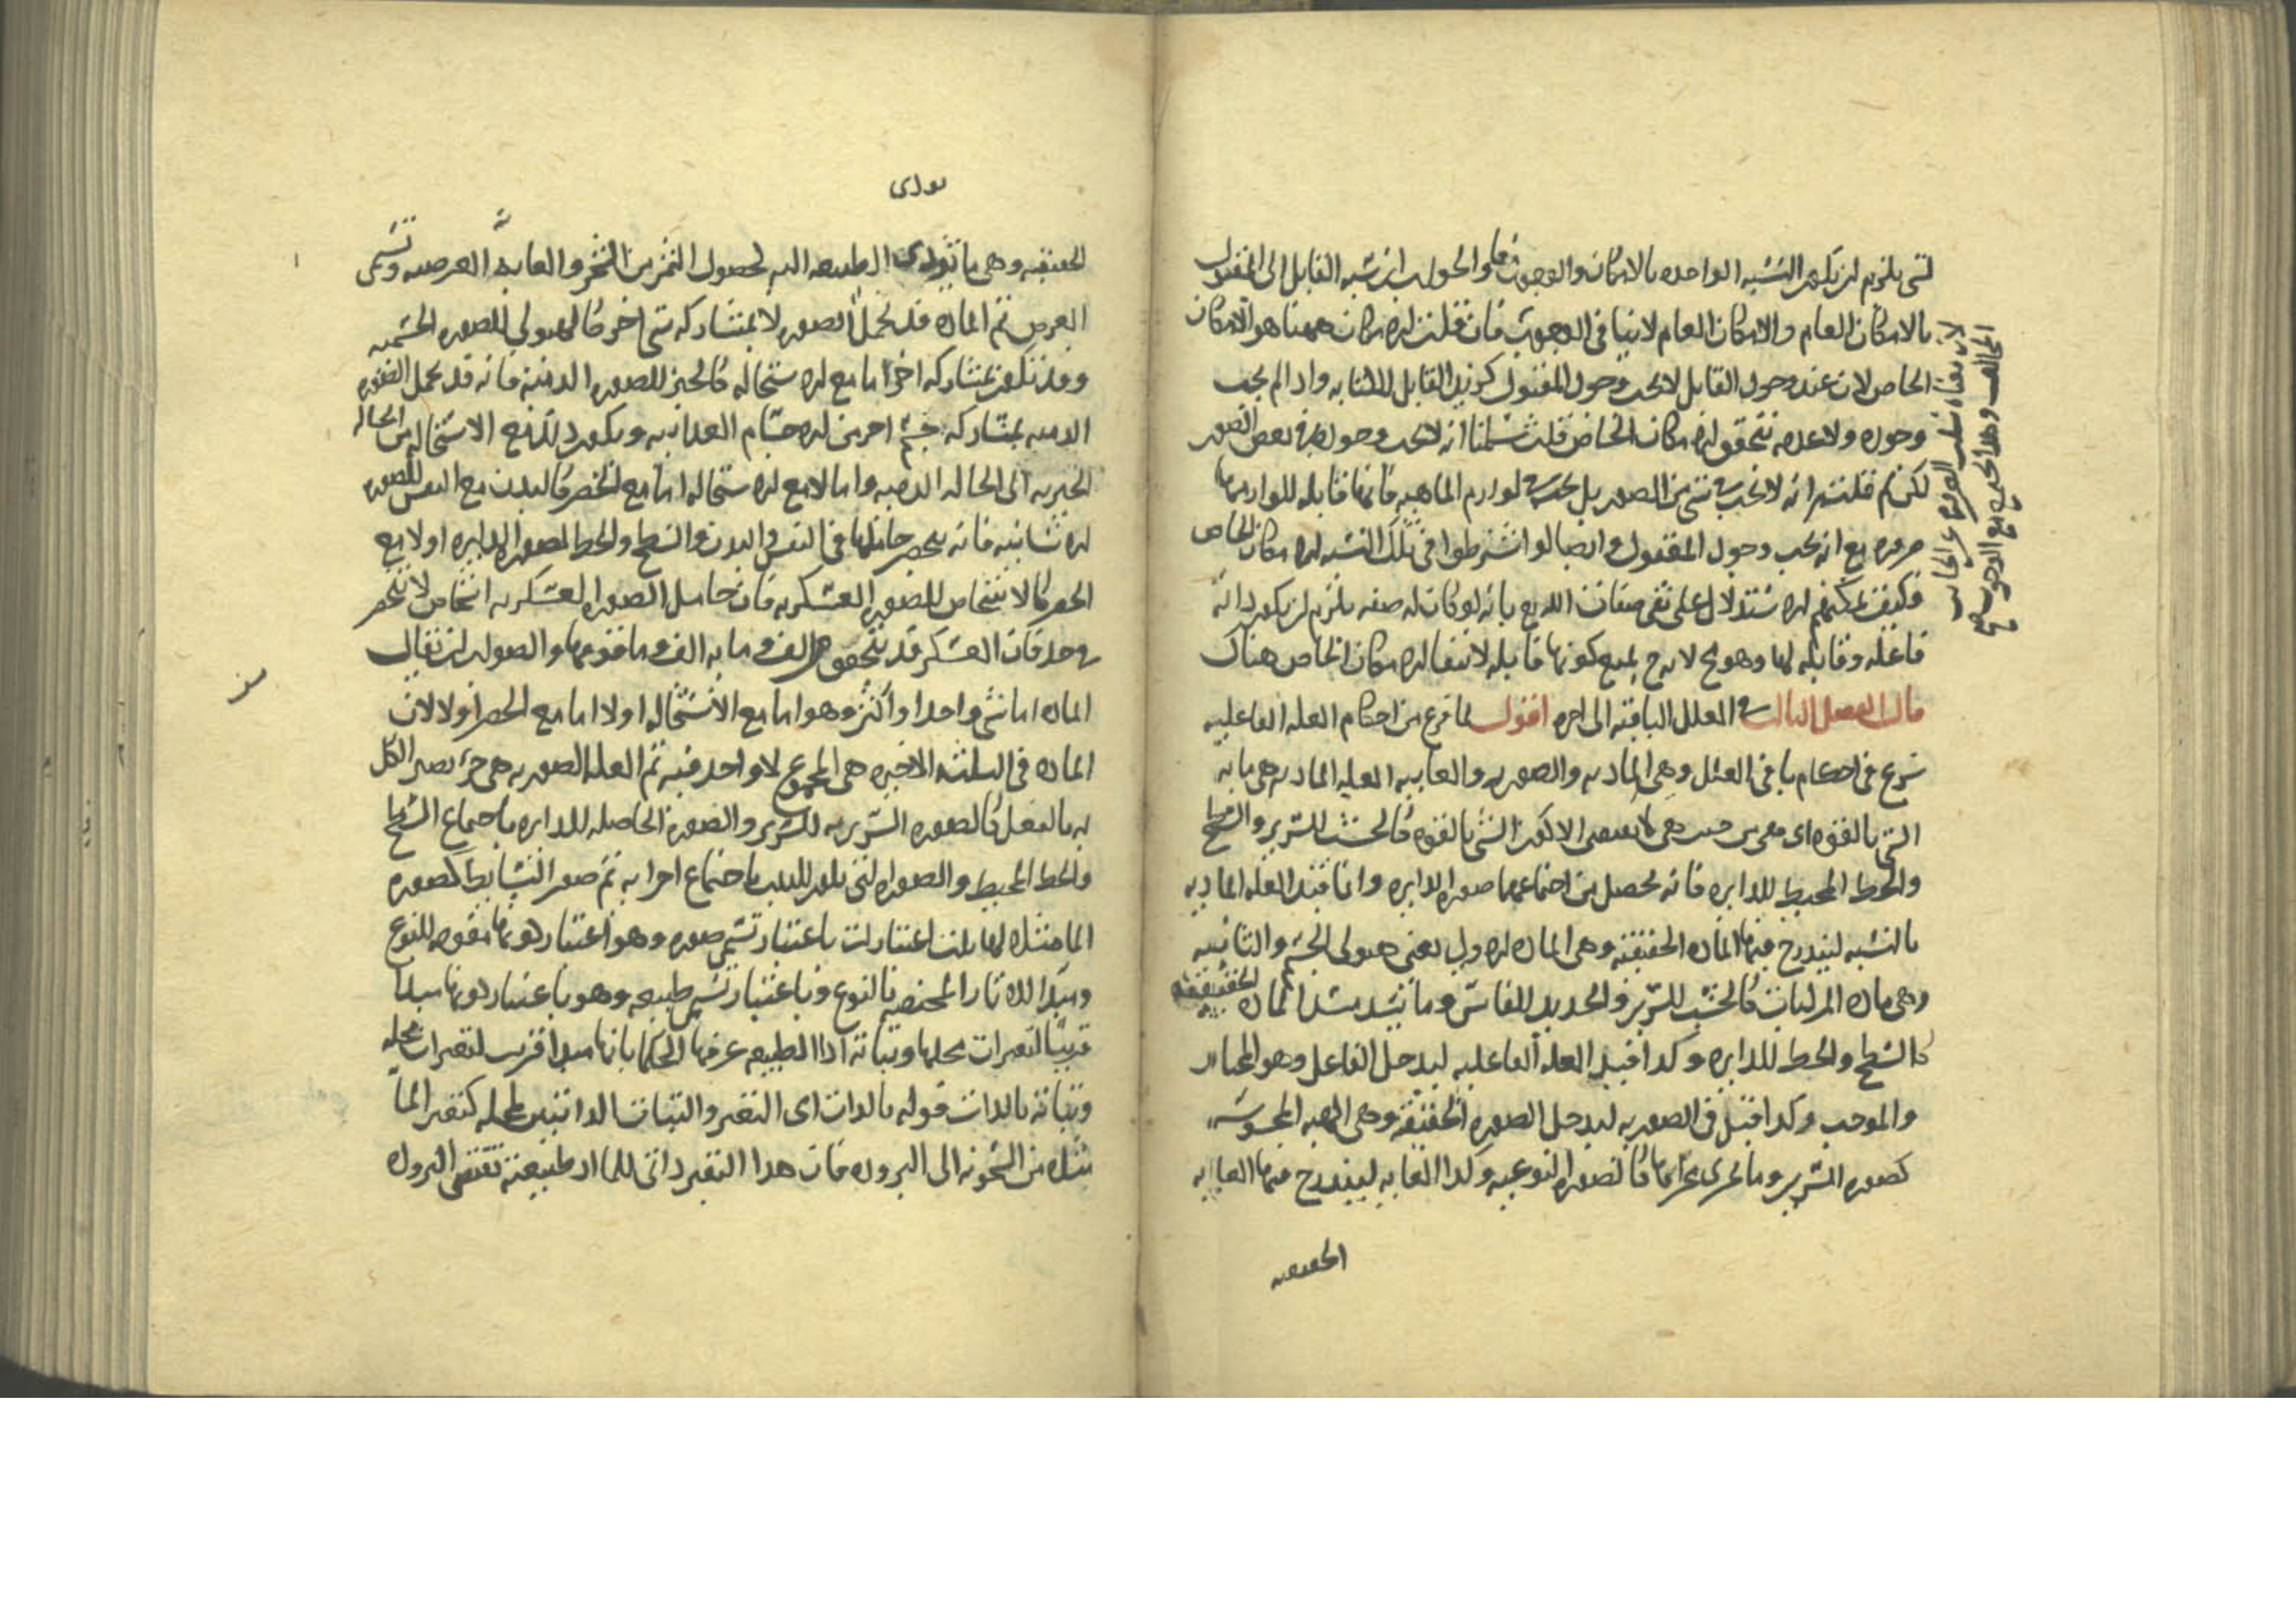 لشي يلزم ان يكون النسبه الواحده بالامكان والوجوب معا والجواب ان نسبه القابل الى المقبول
بالامكان العام والامكان العام لا ينافي الوجوب فان قلت الامكان ههنا هو الامكان
الخاص لان عند وجود القابل لا يجب وجود المقبول كوزيد القابل للكتابه واذا لم يجب
وجوده ولا عدمه تحقق الامكان الخاص قلت سلمنا انه لا يجب وجوده في بعض الصور
لكن لم قلتم انه لا يجب في شي من الصور بل يجب في لوازم الماهيه فانها قابله للوازمها
مع انه يجب وجود المقبول وايضا لو اشترطوا في تلك النسبه الامكان الخاص
فكيف يمكنهم الاستدلال على نفي صفات الله تع بانه لو كان له صفه يلزم ان يكون ذاته
فاعله وقابله لها وهو مح لانه ح يمنع كونها قابله لانتفا الامكان الخاص هناك
قال الفصل الثالث في العلل الباقيه الى اخره اقول لما فرغ من احكام العله الفاعليه
شرع في احكام باقي العلل وهي الماديه والصوريه والغاييه العله الماديه هي ما به
الشي بالقوه اى من حيث هي لا يقتضي الا كون الشي بالقوه كالخشب للسرير والسطح
والخط المحيط للدايره فانه يحصل من اجتماعهما صوره الدايره وانما قيد العله الماديه
بالنسبه ليندرج فيها الماده الحقيقيه وهي الماده الاولى يعني هيولى الجسم والثانيه
وهي ماده المركبات كالخشب للسرير والحديد للفاس وما يشبه الماده الحقيقيه
كالسطح والخط للدايره وكذا قيد العله الفاعليه ليدخل الفاعل وهو المختار
والموجب وكذا قيل في الصوريه ليدخل الصوره الحقيقيه وهي الهيه المحسوسه
كصوره السرير وما يجرى مجراها كالصوره النوعيه وكذا الغايه ليندرج فيها الغايه
الحقيقيه
يودى
الحقيقيه وهي ما يودى الطبيعه اليه لحصول الثمر من الشجر والغايه العرضيه وتسمى
العرض ثم الماده قد تحمل الصوره لا بمشاركه شي اخر كالهيولى للصوره الجسميه
وقد تكون بمشاركه اخر اما مع الاستحاله كالخبز للصوره الدميه فانه قد يحمل الصوره
الدميه بمشاركه جسم اخر من الاجسام الغذاييه ويكون ذلك مع الاستحاله من الحاله
الخبزيه الى الحاله الدميه واما لا مع الاستحاله اما مع الحصر كالبدن مع النفس للصوره
الانسانيه فانه ينحصر حاملها في النفس والبدن والسطح والخط لصوره الدايره او لا مع
الحصر كالاشخاص للصوره العسكريه فان حامل الصوره العسكريه اشخاص لا تنحصر
في حد فان العسكر قد يتحقق من الف وما به الف وما فوقها والصواب ان يقال
الماده اما شي واحد او اكثر وهو اما مع الاستحاله او لا اما مع الحصر او لا لان
الماده في الثلثه الاخيره هي المجموع لا واحد فيه ثم العله الصوريه هي جزء يصير الكل
به بالفعل كالصوره السريريه للسرير والصوره الحاصله للدايره باجتماع السطح
والخط المحيط والصوره التي للبيت باجتماع اجزايه ثم صور البسايط كصوره
الما مثلا لها ثلث اعتبارات باعتبار تسمى صوره وهو اعتبار كونها مقومه للنوع
ومبدا للاثار المختصه بالنوع وباعتبار تسمى طبيعه وهو باعتبار كونها مبدا
قريبا لتغيرات محلها وثباته اذ الطبيعه عرفها الحكما بانها مبدا قريب لتغيرات محله
وثباته بالذات قوله بالذات اى التغير والثبات الذاتيين لمحله كتغير الما
مثلا من السخونه الى البروده فان هذا التغير ذاتي للما اذ طبيعته تقتضي البروده